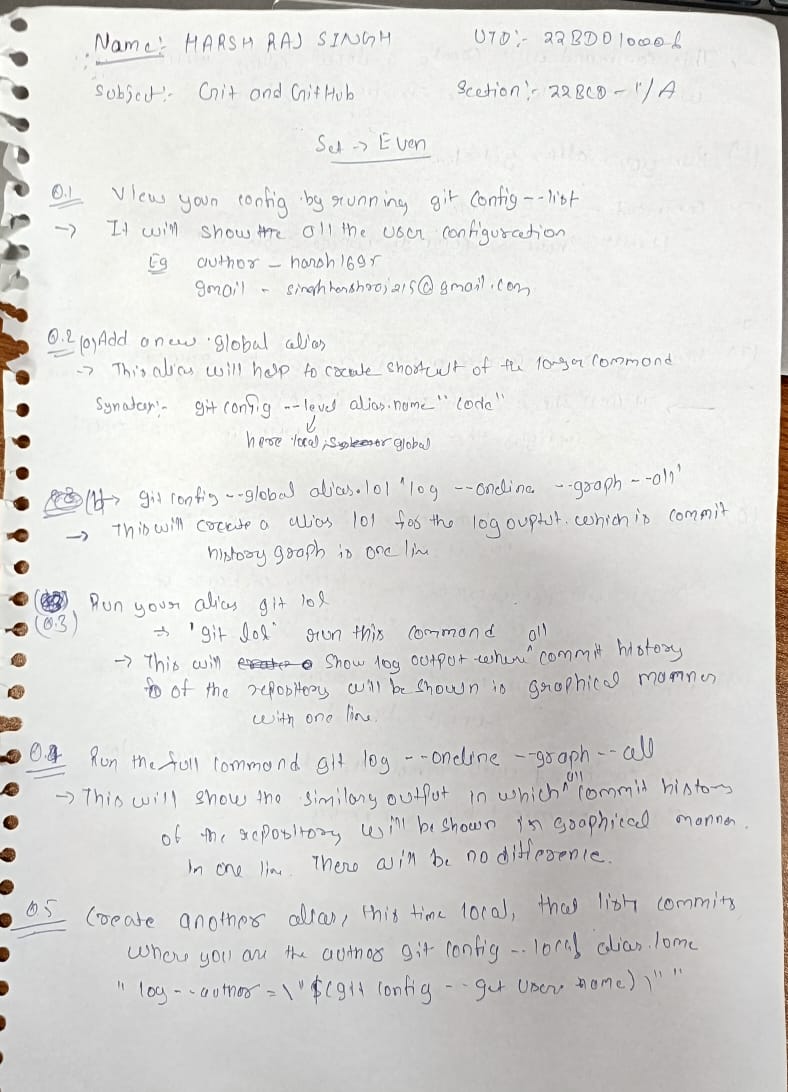 Name:- HARSH RAJ SINGH UID:- 22BDO10006
Subject:- Git and GitHub Section:- 22BCD-1/A
Set -> Even
Q.1 View your config by running git config --list
-> It will show the all the user configuration
Eg author - harsh169r
gmail - singhharshraj215@gmail.com
Q.2 (a) Add a new global alias
-> This alias will help to create shortcut of the longer command
Synatax:- git config --level alias.name "code"
here local, global
(b) -> git config --global alias.lol 'log --oneline --graph --all'
-> This will create a alias lol for the log ouptut. which is commit
history graph is one line
(Q.3) Run your alias git lol
-> 'git lol' run this command
-> This will show log output where all commit history
of the repository will be shown is graphical manner
with one line.
Q.4 Run the full command git log --oneline --graph --all
-> This will show the similary output in which all commit history
of the repository will be shown in graphical manner.
In one line. There will be no difference.
Q5 Create another alias, this time local, that lists commits
where you are the author git config --local alias.lome
"log --author=\"$(git config --get user name)\""